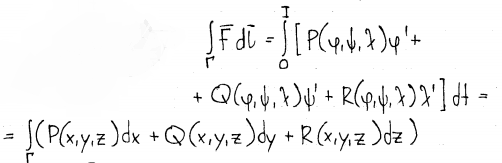 ∫_Γ F̄ dl̄ = ∫_0^I [P(φ,ψ,χ)φ' +
+ Q(φ,ψ,χ)ψ' + R(φ,ψ,χ)χ'] dt =
= ∫_Γ (P(x,y,z)dx + Q(x,y,z)dy + R(x,y,z)dz)